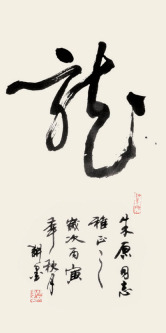 龙
朱原同志
雅正
岁次丙寅
年秋月